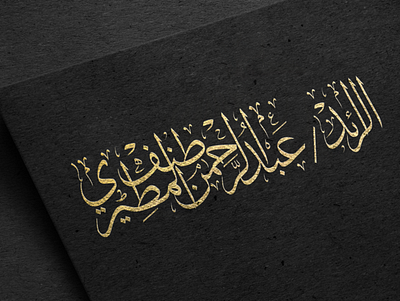 الرائد / عبدالرحمن المطيري